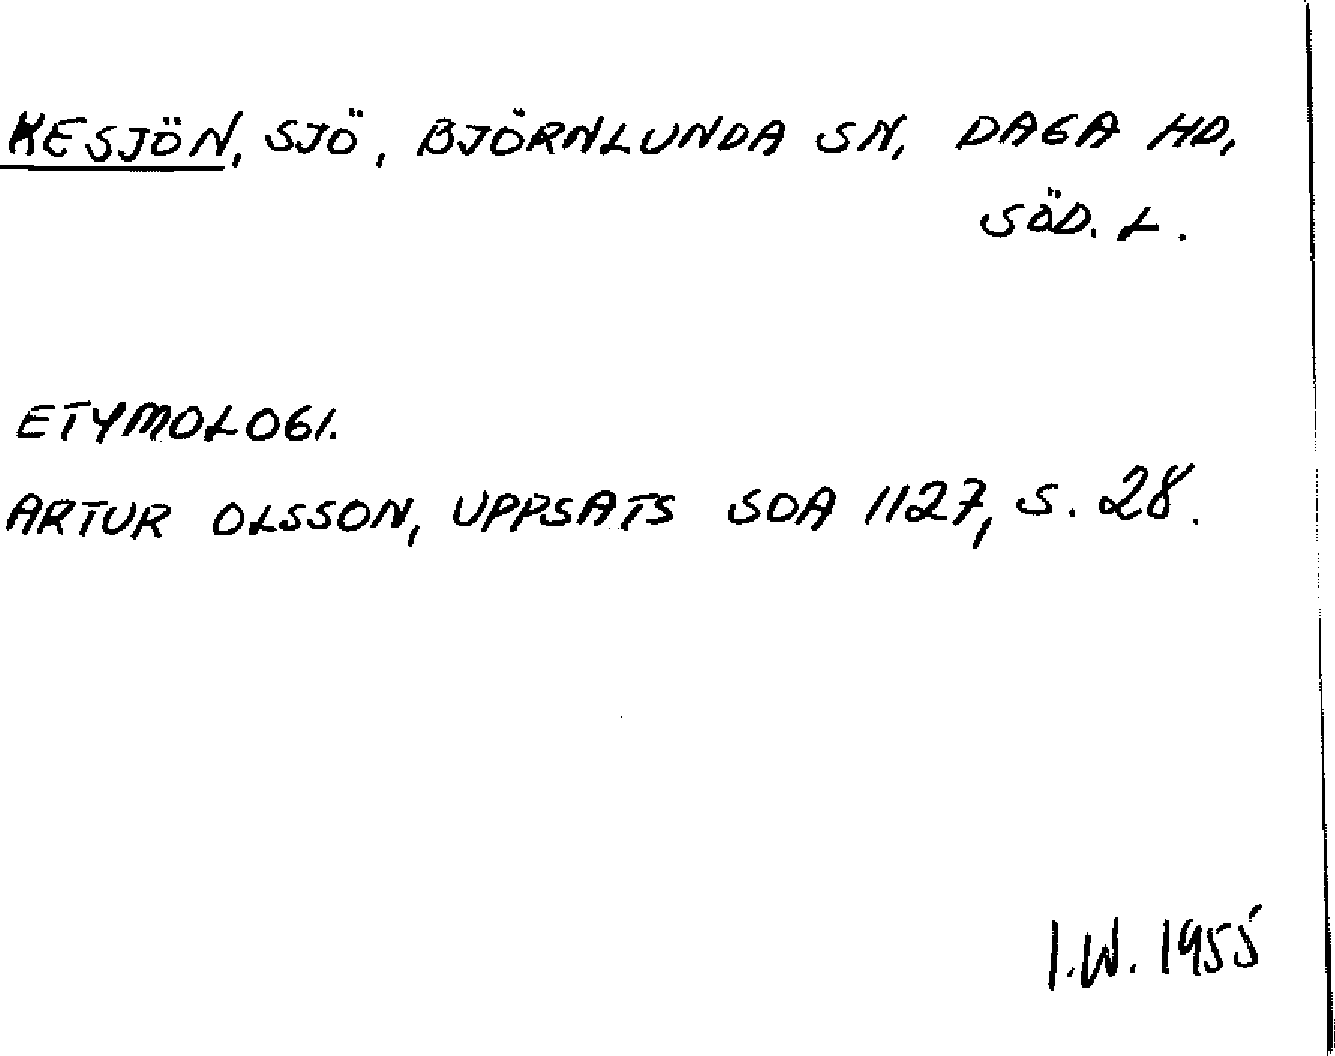 KESJÖN, SJÖ, BJÖRNLUNDA SN, DAGA HD,
SÖD. L.
ETYMOLOGI.
ARTUR OLSSON, UPPSATS SOA 1127, S. 28.
I.W. 1955